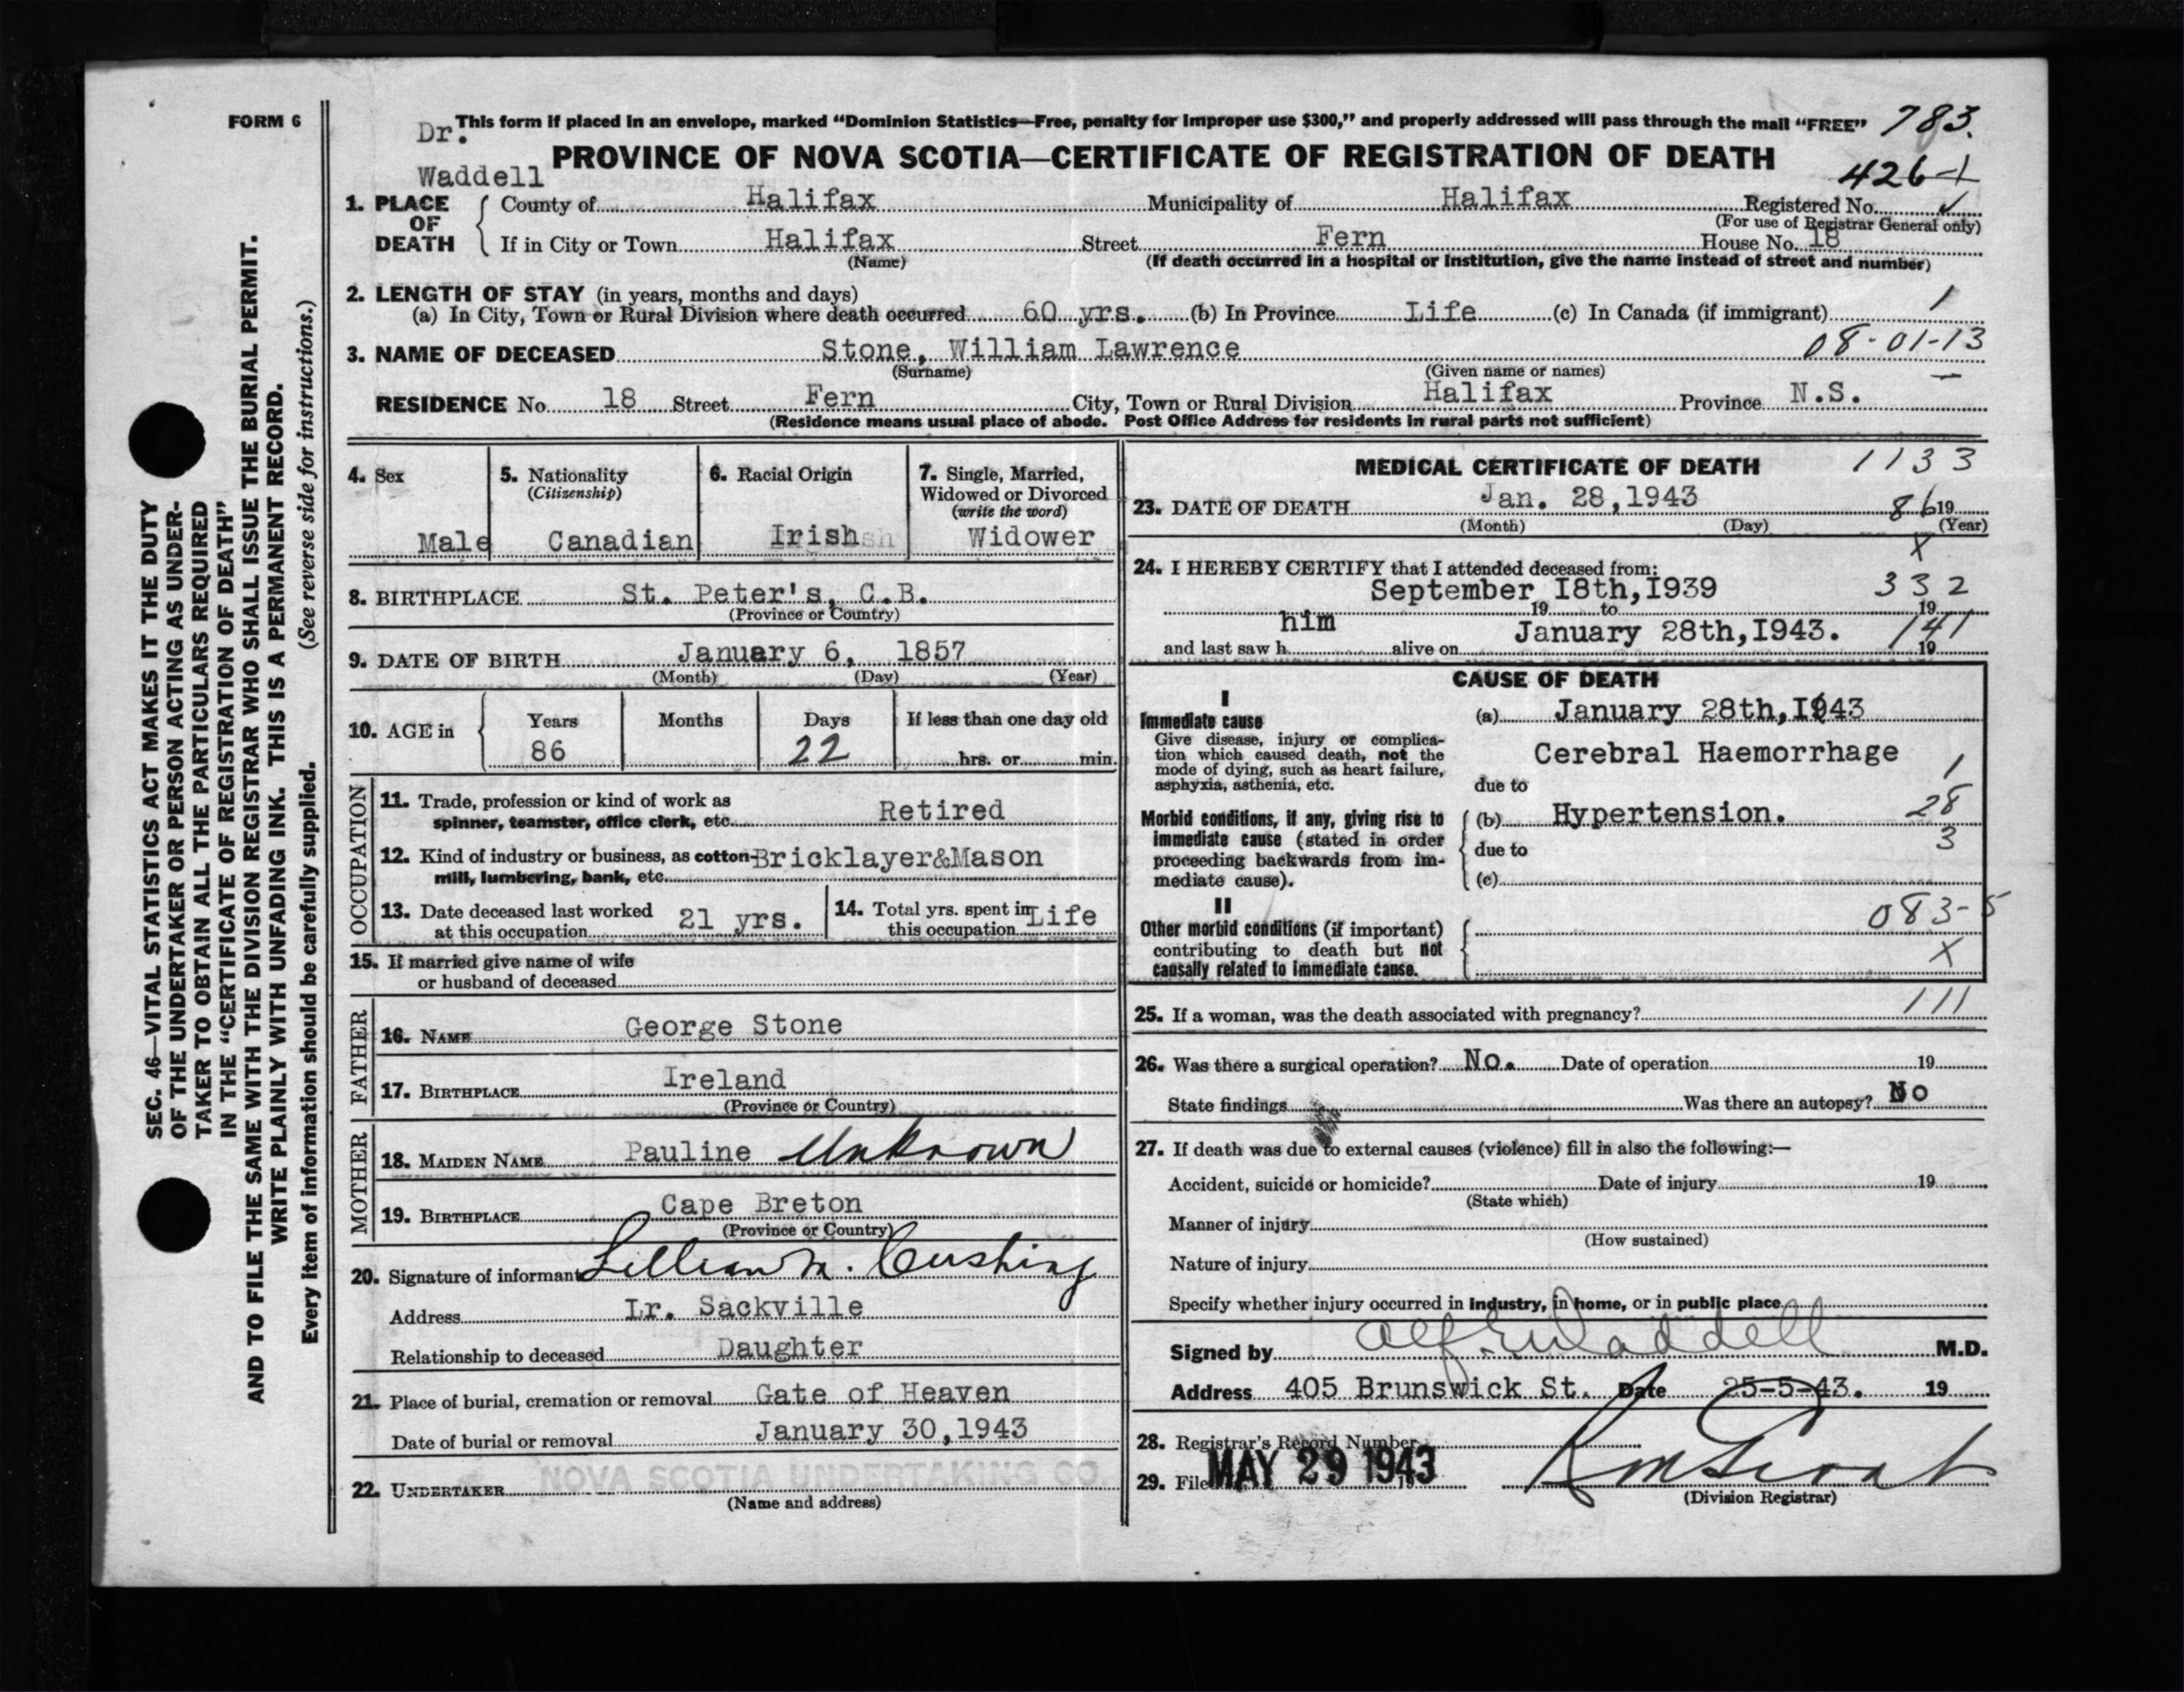 FORM 6
This form if placed in an envelope, marked “Dominion Statistics—Free, penalty for improper use $300,” and properly addressed will pass through the mail “FREE” 783.
Dr.
Waddell
PROVINCE OF NOVA SCOTIA—CERTIFICATE OF REGISTRATION OF DEATH
426
1. PLACE OF DEATH
County of Halifax Municipality of Halifax Registered No.
(For use of Registrar General only)
If in City or Town Halifax Street Fern House No. 18
(Name) (If death occurred in a hospital or institution, give the name instead of street and number)
2. LENGTH OF STAY (in years, months and days)
(a) In City, Town or Rural Division where death occurred 60 yrs. (b) In Province Life (c) In Canada (if immigrant) 1
08-01-13
3. NAME OF DECEASED Stone, William Lawrence
(Surname) (Given name or names)
RESIDENCE No. 18 Street Fern City, Town or Rural Division Halifax Province N.S.
(Residence means usual place of abode. Post Office Address for residents in rural parts not sufficient)
4. Sex
Male
5. Nationality
(Citizenship)
Canadian
6. Racial Origin
Irish
7. Single, Married,
Widowed or Divorced
(write the word)
Widower
8. BIRTHPLACE St. Peter's, C.B.
(Province or Country)
9. DATE OF BIRTH January 6, 1857
(Month) (Day) (Year)
10. AGE in
Years Months Days If less than one day old
86 22 hrs. or min.
OCCUPATION
11. Trade, profession or kind of work as
spinner, teamster, office clerk, etc. Retired
12. Kind of industry or business, as cotton- Bricklayer&Mason
mill, lumbering, bank, etc.
13. Date deceased last worked
at this occupation 21 yrs.
14. Total yrs. spent in
this occupation Life
15. If married give name of wife
or husband of deceased
FATHER
16. NAME George Stone
17. BIRTHPLACE Ireland
(Province or Country)
MOTHER
18. MAIDEN NAME Pauline Unknown
19. BIRTHPLACE Cape Breton
(Province or Country)
20. Signature of informant Lillian M. Cushing
Address Lr. Sackville
Relationship to deceased Daughter
21. Place of burial, cremation or removal Gate of Heaven
Date of burial or removal January 30,1943
22. UNDERTAKER NOVA SCOTIA UNDERTAKING CO.
(Name and address)
MEDICAL CERTIFICATE OF DEATH 1133
23. DATE OF DEATH Jan. 28,1943 86 19
(Month) (Day) (Year)
X
24. I HEREBY CERTIFY that I attended deceased from:
September I8th,I939 332
19 to 19
and last saw h him alive on January 28th,I943. 141 19
CAUSE OF DEATH
I
Immediate cause
Give disease, injury or complica-
tion which caused death, not the
mode of dying, such as heart failure,
asphyxia, asthenia, etc.
(a) January 28th,I943
Cerebral Haemorrhage
1
due to
Morbid conditions, if any, giving rise to
immediate cause (stated in order
proceeding backwards from im-
mediate cause).
(b) Hypertension. 28
due to 3
(c)
II
083-5
Other morbid conditions (if important)
contributing to death but not
causally related to immediate cause.
X
25. If a woman, was the death associated with pregnancy? 111
26. Was there a surgical operation? No. Date of operation 19
State findings Was there an autopsy? No
27. If death was due to external causes (violence) fill in also the following:—
Accident, suicide or homicide? Date of injury 19
(State which)
Manner of injury
(How sustained)
Nature of injury
Specify whether injury occurred in industry, in home, or in public place
Signed by Alf. E. Waddell M.D.
Address 405 Brunswick St. Date 25-5-43. 19
28. Registrar's Record Number
29. File MAY 29 1943 19
(Division Registrar)
SEC. 46—VITAL STATISTICS ACT MAKES IT THE DUTY
OF THE UNDERTAKER OR PERSON ACTING AS UNDER-
TAKER TO OBTAIN ALL THE PARTICULARS REQUIRED
IN THE “CERTIFICATE OF REGISTRATION OF DEATH”
AND TO FILE THE SAME WITH THE DIVISION REGISTRAR WHO SHALL ISSUE THE BURIAL PERMIT.
WRITE PLAINLY WITH UNFADING INK. THIS IS A PERMANENT RECORD.
Every item of information should be carefully supplied. (See reverse side for instructions.)